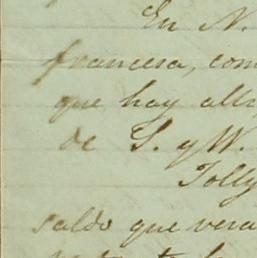 En N.
francesa, com
que hay alli
de S. y W.
Tolly
saldo que vera